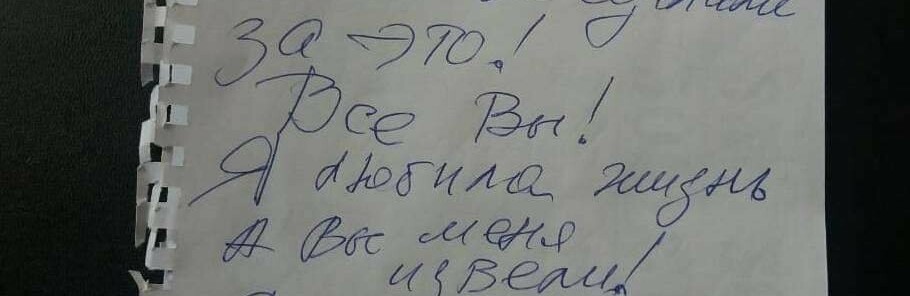 за это!
Все Вы!
Я любила жизнь
А Вы меня
извели!